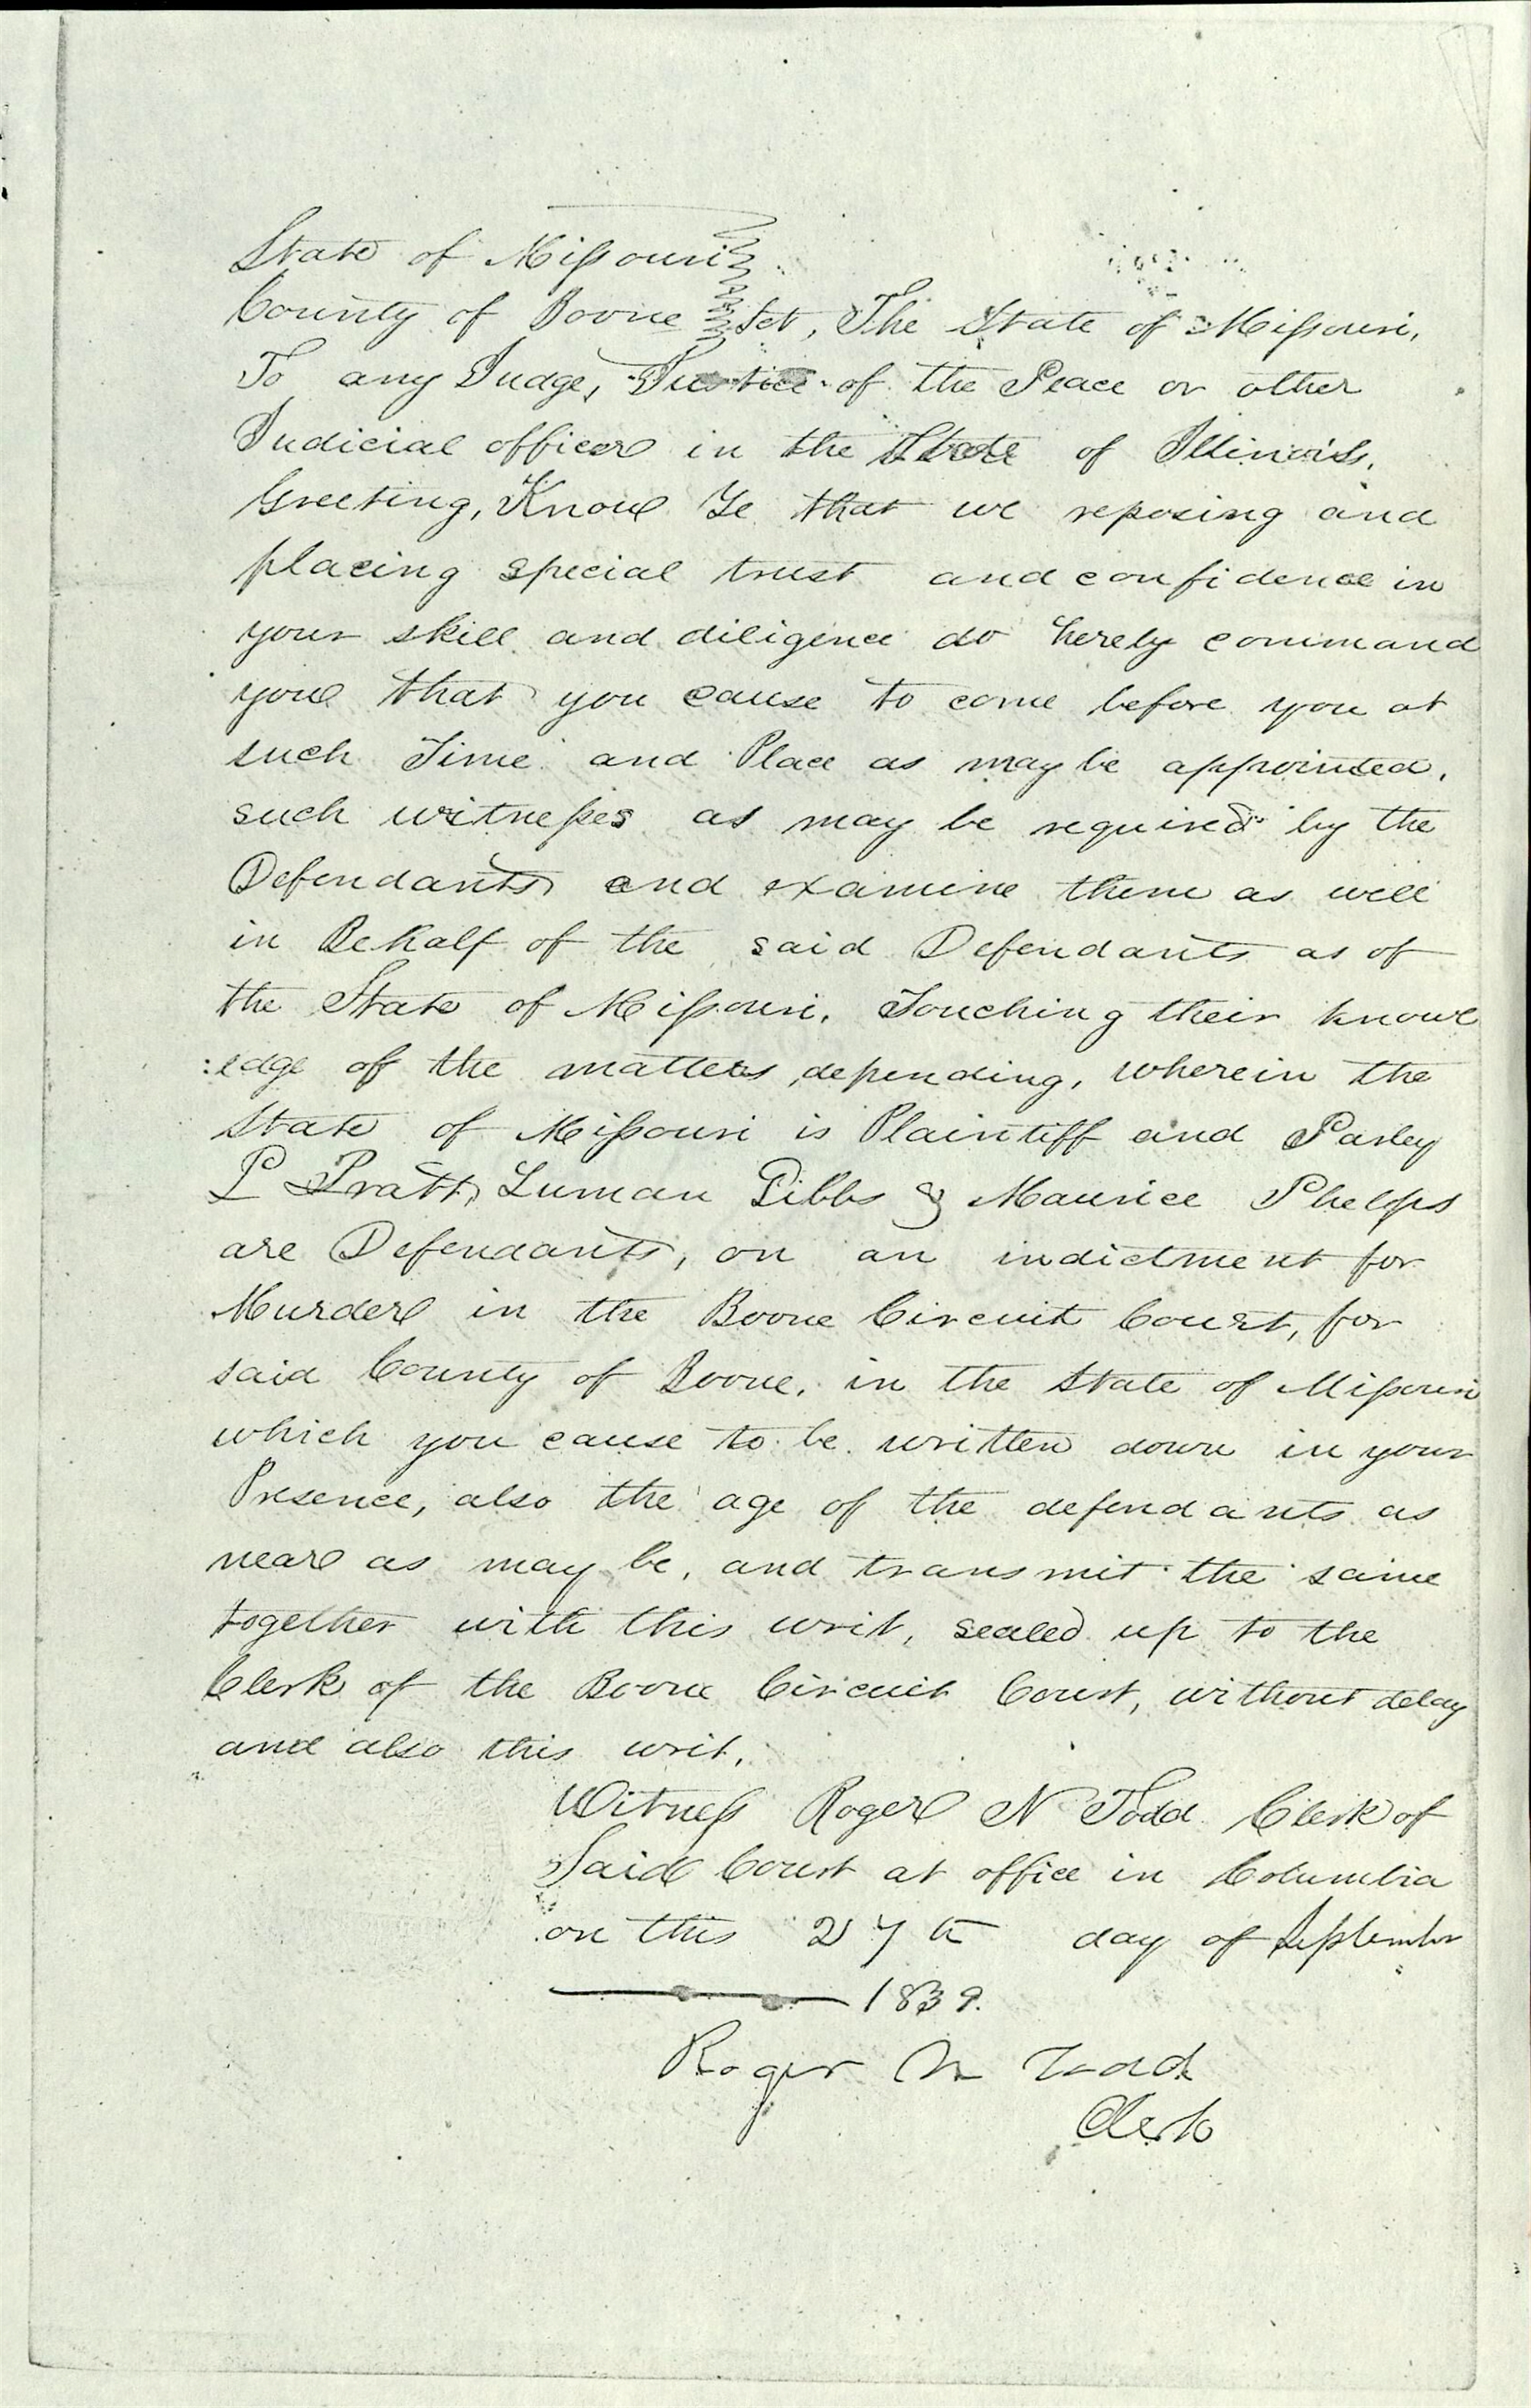 State of Missouri
County of Boone Sct, The State of Missouri,
To any Judge, Justice of the Peace or other
Judicial officer in the State of Illinois,
Greeting, Know Ye that we reposing and
placing special trust and confidence in
your skill and diligence do hereby command
you that you cause to come before you at
such Time and Place as may be appointed,
such witnesses as may be required by the
Defendants and examine them as well
in Behalf of the said Defendants as of
the State of Missouri, Touching their knowl
:edge of the matters depending, wherein the
State of Missouri is Plaintiff and Parley
P Pratt, Luman Gibbs & Maurice Phelps
are Defendants, on an indictment for
Murder in the Boone Circuit Court, for
said County of Boone, in the State of Missouri
which you cause to be written down in your
Presence, also the age of the defendants as
near as may be, and transmit the same
together with this writ, sealed up to the
Clerk of the Boone Circuit Court, without delay
and also this writ,
Witness Roger N Todd Clerk of
Said Court at office in Columbia
on this 27th day of September
1839.
Roger N Todd
Clerk